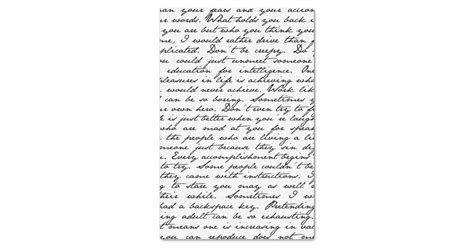 than your fears and your
words. What holds you back i
you are but who you think you
, I would rather drive than p
plicated. Don't be creepy. Do
ou could just unmeet someone
education for intelligence. One
pleasures in life is achieving wh
would never achieve. Work like
can be so boring. Sometimes y
own hero. Don't even try to f
is just better when you're laugh
who are mad at you for speak
the people who are living a li
meone just because they sin de
u. Every accomplishment begins
to try. Some people couldn't be
they came with instructions. I
g to stare you may as well
their while. Sometimes I w
had a backspace key. Pretending
ing adult can be so exhausting.
means one is increasing in va
you can reproduce does not me